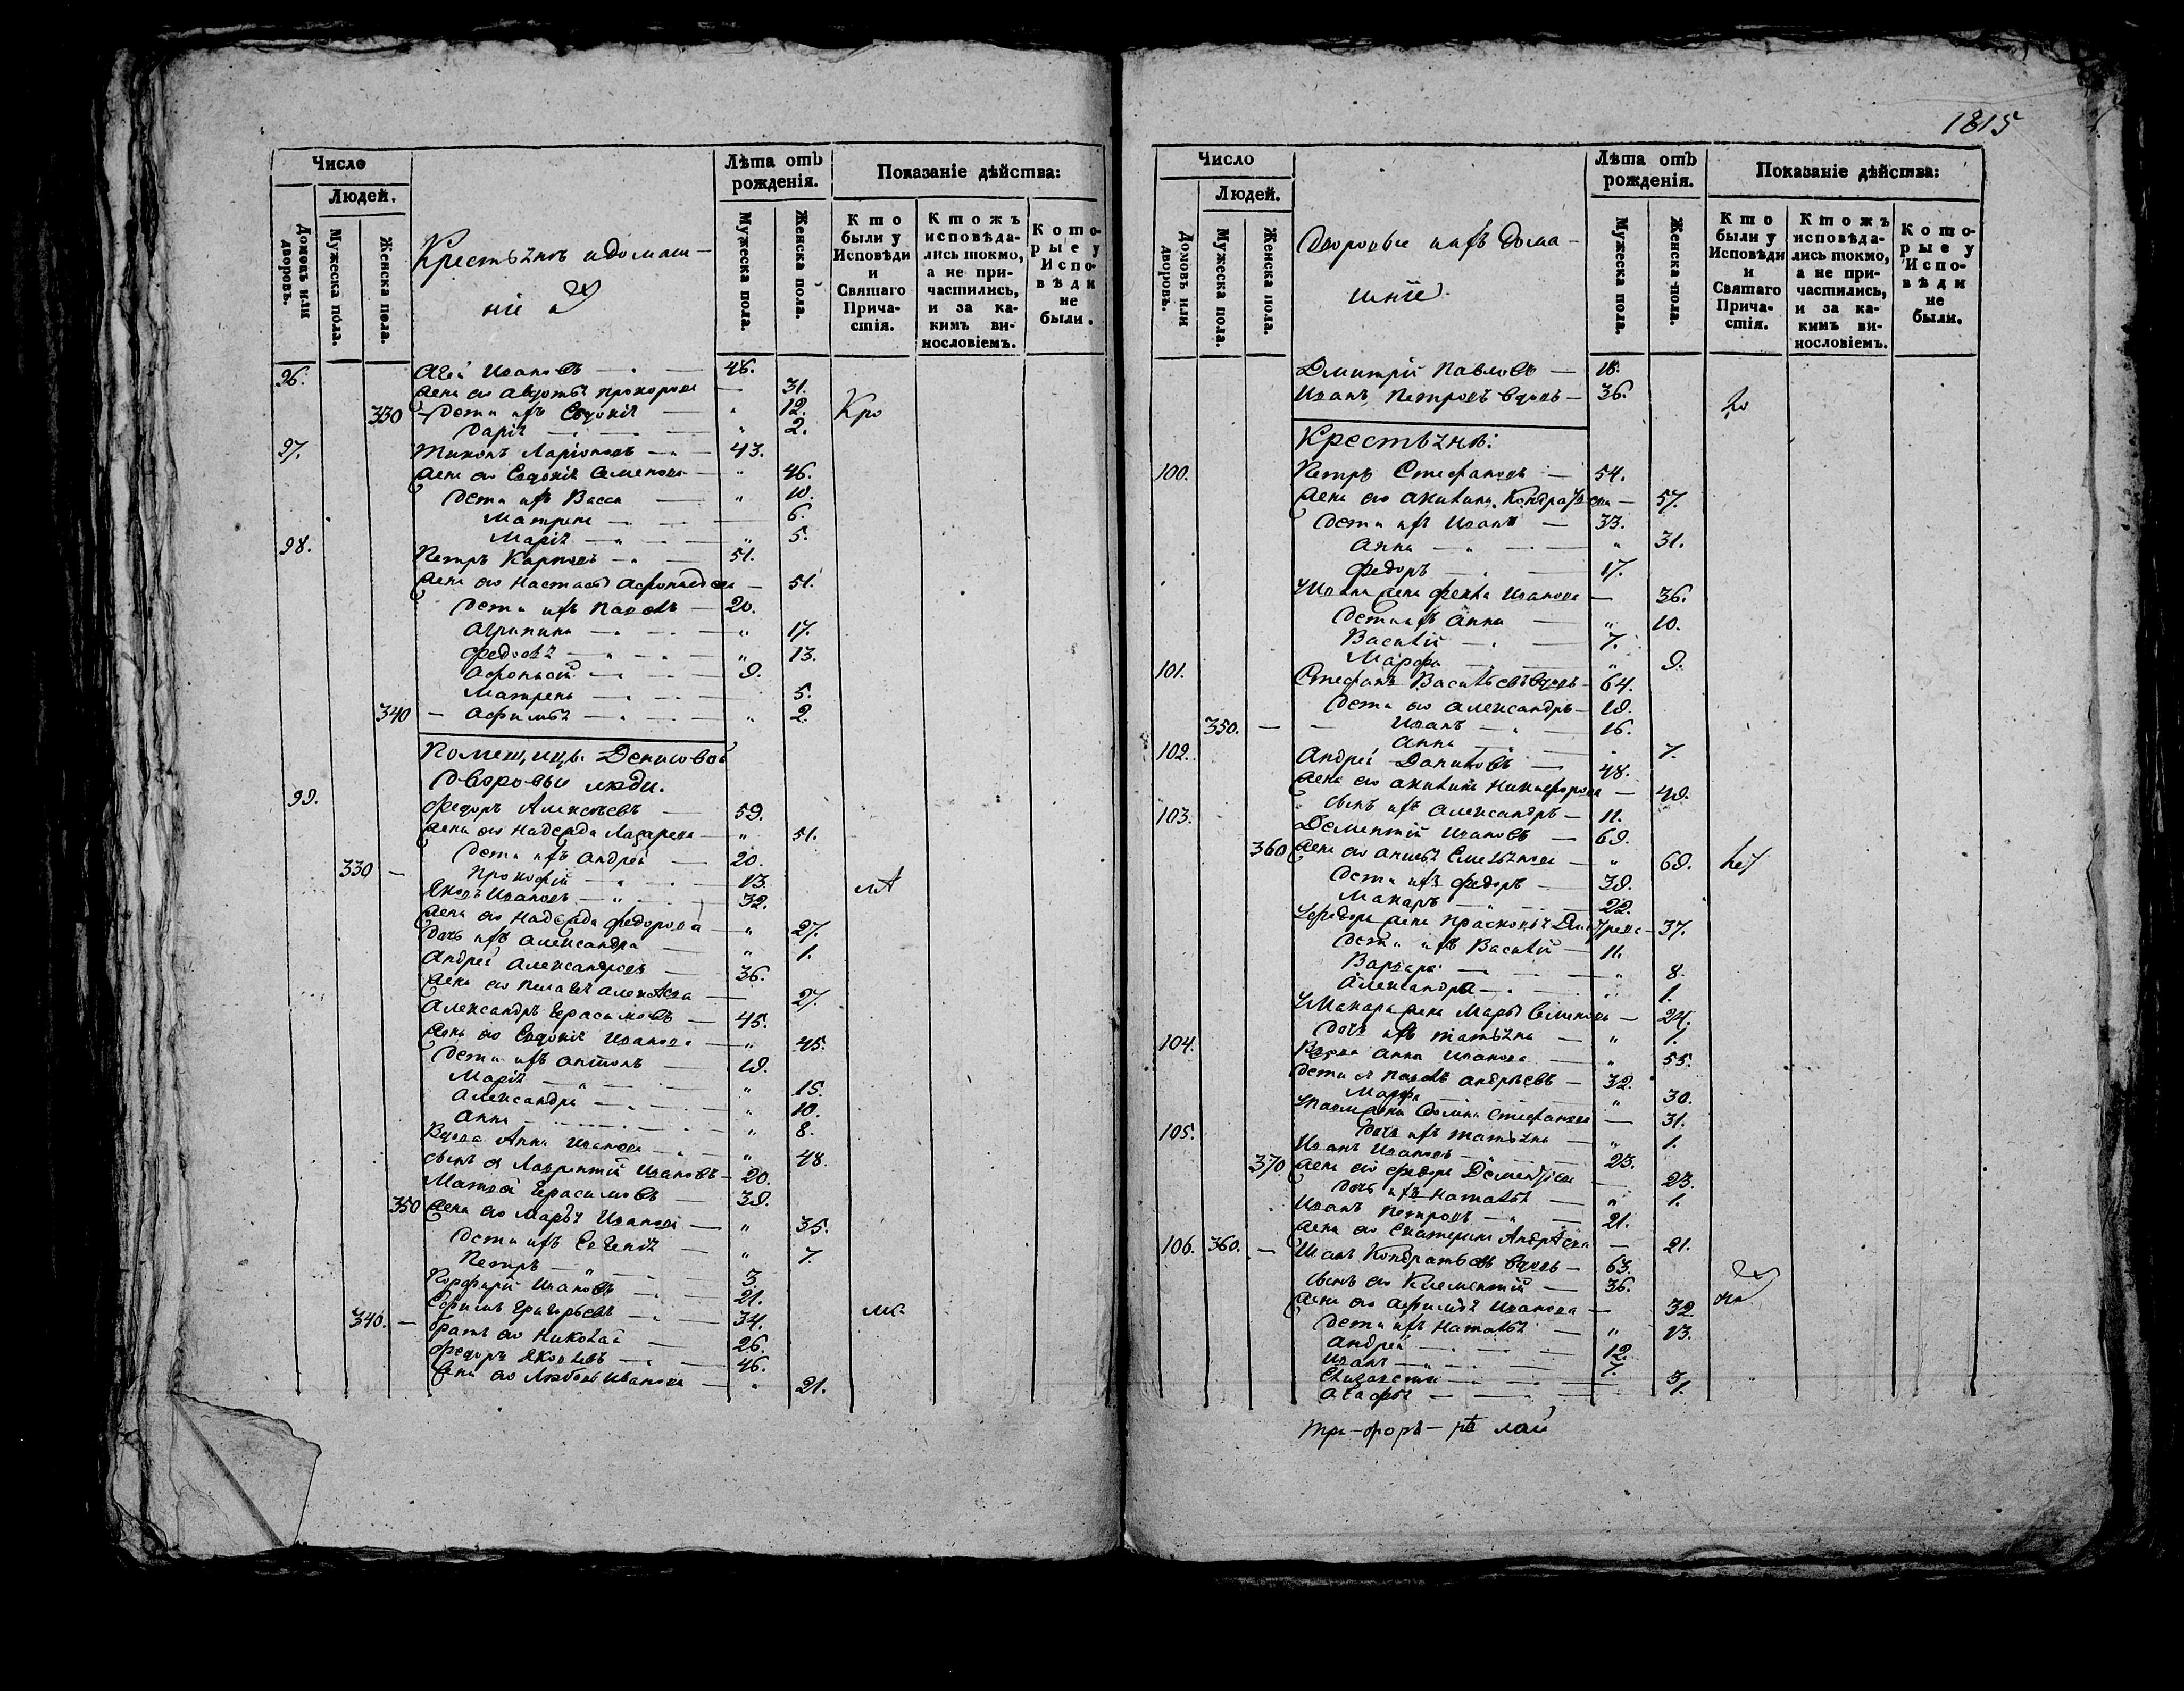 1815
Число
Людей.
Домовъ или дворовъ.
Мужеска пола.
Женска пола.
Крестьянѣ и домаш-
ніи
Лѣта отъ рожденія.
Мужеска пола.
Женска пола.
Показаніе дѣйства:
Кто были у Исповѣди и Святаго Прича-стія.
Ктожъ исповѣда-лись токмо, а не при-частились, и за ка-кимъ ви-нословіемъ.
Кото-рые у Испо-вѣди не были.
96. Ивановъ 46.
жена его Авдотья Прохорова 31.
330 Дети ихъ Евдокія 12.
Дарія 2.
97. Тихонъ Ларіоновъ 43.
жена его Евдокія Семенова 46.
Дети ихъ Васса 10.
Матрена 6.
Марія 5.
98. Петръ Карповъ 51.
жена его Настасья 51.
Дети ихъ Павелъ 20.
Агрипина 17.
Федосья 13.
Афонасий 9.
Матрена 5.
340 Афимья 2.
Помещицы Денисовой
Дворовыи люди.
99. Федоръ Алексеевъ 59.
жена его Надежда Лазарева 51.
Дети ихъ Андрей 20.
330 Прокофій 13.
Яковъ Ивановъ 32.
жена его Надежда Федорова 27.
Дочь ихъ Александра 1.
Андрей Александровъ 36.
жена его Пелагея Алексеева 27.
Александръ Герасимовъ 45.
жена его Евдокія Иванова 45.
Дети ихъ Антонъ 19.
Марія 15.
Александра 10.
Анна 8.
Вдова Анна Иванова 48.
сынъ ея Лаврентій Ивановъ 20.
Матвей Герасимовъ 39.
350 жена его Марья Иванова 35.
Дети ихъ Евгенія 7.
Петръ 3.
Порфирій Ивановъ 21.
Ефимъ Григорьевъ 34.
340. братъ его Николай 26.
Федоръ Яковлевъ 46.
жена его Любовь Иванова 21.
Число
Людей.
Домовъ или дворовъ.
Мужеска пола.
Женска пола.
Дворовые ихъ дома-
шніе.
Лѣта отъ рожденія.
Мужеска пола.
Женска пола.
Показаніе дѣйства:
Кто были у Исповѣди и Святаго Прича-стія.
Ктожъ исповѣда-лись токмо, а не при-частились, и за ка-кимъ ви-нословіемъ.
Кото-рые у Испо-вѣди не были.
Дмитрій Павловъ 18.
Иванъ Петровъ вдовъ 36.
Крестьянѣ:
100. Петръ Стефановъ 54.
жена его Акилина Кондратьева 57.
Дети ихъ Иванъ 33.
Анна 31.
Федоръ 17.
У Ивана жена Фекла Иванова 36.
Дети ихъ Анна 10.
Василій 7.
Марфа 9.
101. Стефанъ Васильевъ вдовъ 64.
Дети его Александръ 19.
350. Иванъ 16.
Анна 7.
102. Андрей Даниловъ 48.
жена его Акилина Никифорова 49.
сынъ ихъ Александръ 11.
103. Дементій Ивановъ 69.
360 жена его Анисья Емельянова 69.
Дети ихъ Федоръ 39.
Макаръ 22.
У Федора жена Прасковья 37.
Дети ихъ Василій 11.
Варвара 8.
Александра 1.
У Макара жена Марья Семенова 24.
Дочь ихъ Татьяна 1.
104. Вдова Анна Иванова 55.
Дети ея Павелъ Андреевъ 32.
Марфа 30.
У Павла жена Домна Стефанова 31.
Дочь ихъ Татьяна 1.
105. Иванъ Ивановъ 23.
370 жена его Федора Дементьева 23.
Дочь ихъ Наталья 1.
Иванъ Петровъ 21.
жена его Екатерина Андреева 21.
106. 360. Иванъ Кондратьевъ вдовъ 63.
сынъ его Климентій 36.
жена его Афимья Иванова 32
Дети ихъ Наталья 13.
Андрей 12.
Иванъ 7.
Елизавета
Агафья 1.